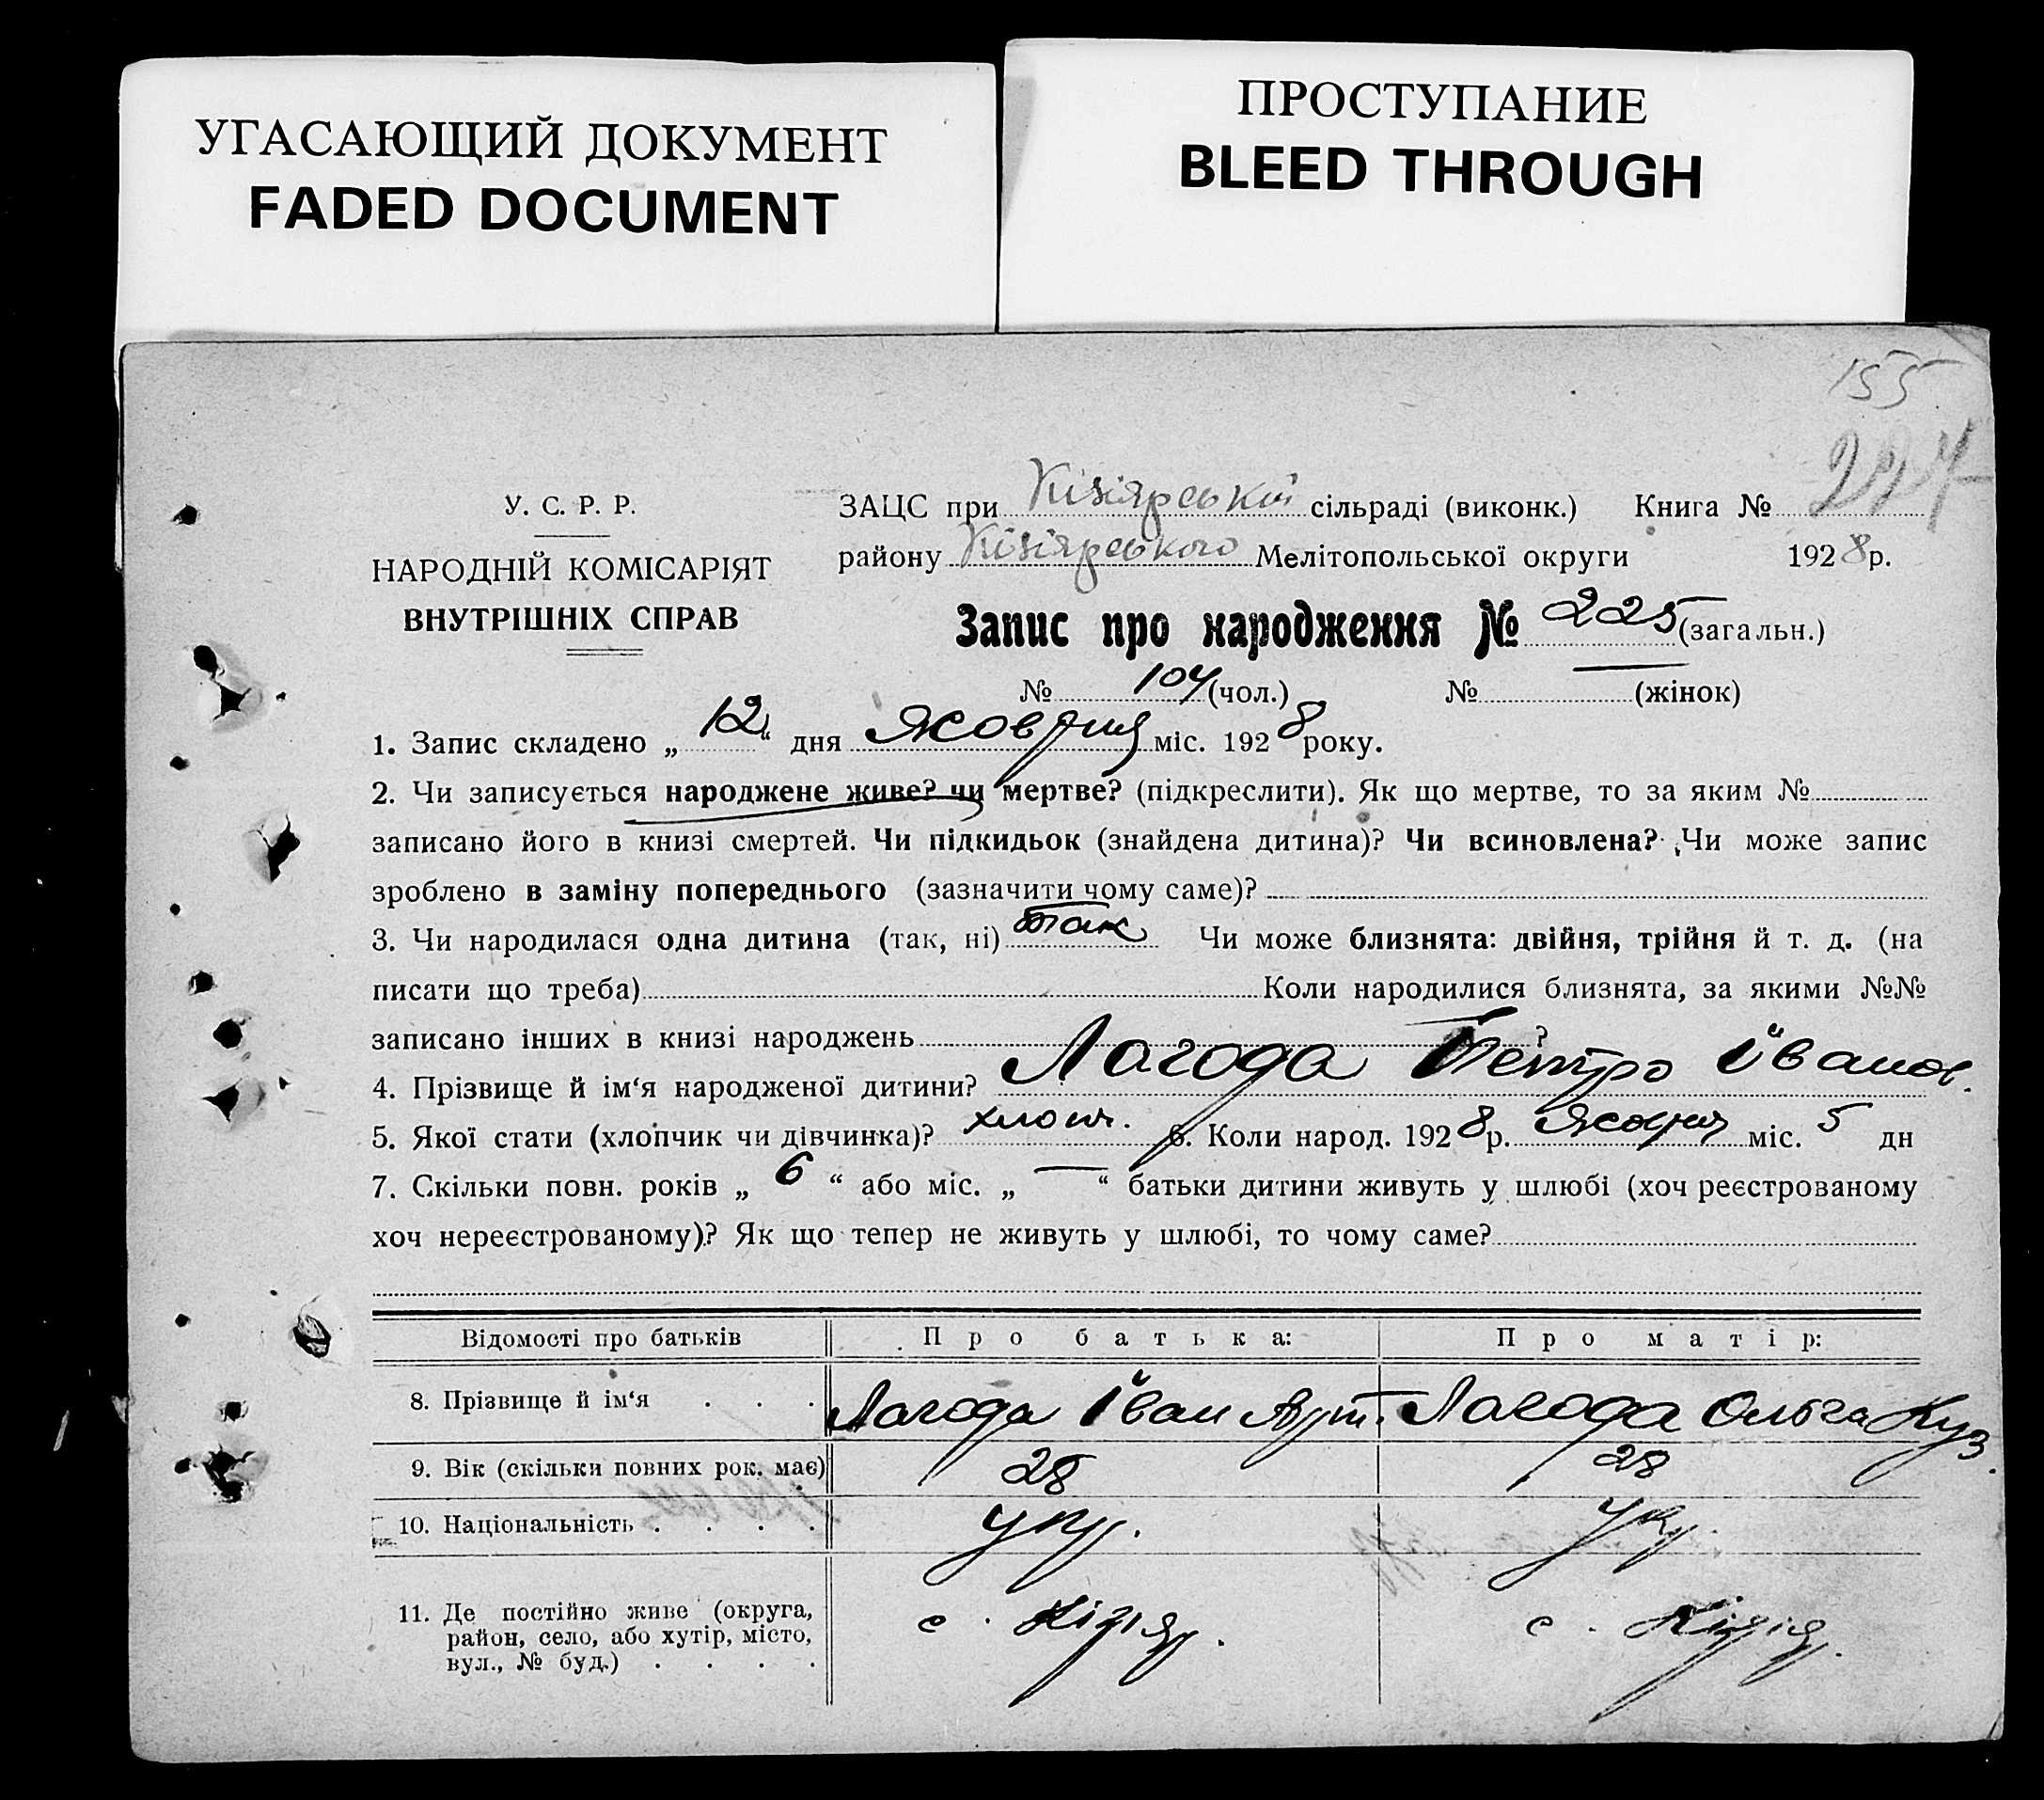 УГАСАЮЩИЙ ДОКУМЕНТ
FADED DOCUMENT
ПРОСТУПАНИЕ
BLEED THROUGH
155
У. С. Р. Р.
НАРОДНІЙ КОМІСАРІЯТ
ВНУТРІШНІХ СПРАВ
ЗАЦС при Кізіярській сільраді (виконк.) Книга №
району Кізіярського Мелітопольської округи 1928р.
Запис про народження № 225 (загальн.)
№ 104 (чол.) № — (жінок)
1. Запис складено „12“ дня Жовтня міс. 1928 року.
2. Чи записується народжене живе? чи мертве? (підкреслити). Як що мертве, то за яким №
записано його в книзі смертей. Чи підкидьок (знайдена дитина)? Чи всиновлена? Чи може запис
зроблено в заміну попереднього (зазначити чому саме)?
3. Чи народилася одна дитина (так, ні) так Чи може близнята: двійня, трійня й т. д. (на
писати що треба) Коли народилися близнята, за якими №№
записано інших в книзі народжень ?
4. Прізвище й ім‘я народженої дитини? Лагода Петро Іванов.
5. Якої стати (хлопчик чи дівчинка)? хлопч. 6. Коли народ. 1928р. Жовтня міс. 5 дн
7. Скільки повн. років „6“ або міс. „—“ батьки дитини живуть у шлюбі (хоч реєстрованому
хоч нереєстрованому)? Як що тепер не живуть у шлюбі, то чому саме?
Відомості про батьків Про батька: Про матір:
8. Прізвище й ім‘я . . . Лагода Іван Арт. Лагода Ольга Куз.
9. Вік (скільки повних рок. має) 28 28
10. Національність . . . . укр. укр.
11. Де постійно живе (округа, с. Кізіяр. с. Кізіяр.
район, село, або хутір, місто,
вул., № буд.) . . . .